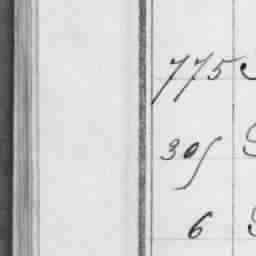 775
305
6